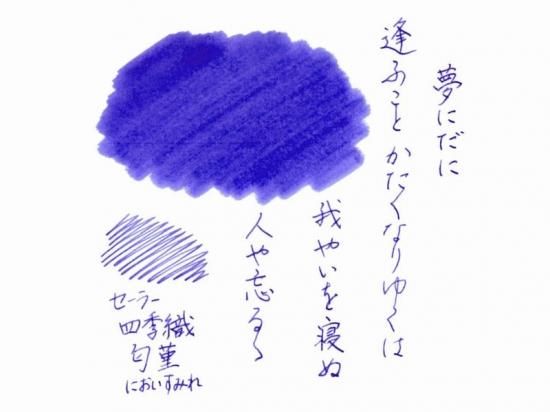 夢にだに
逢ふことかたくなりゆくは
我やいを寝ぬ
人や忘るゝ
セーラー
四季織
匂菫
においすみれ